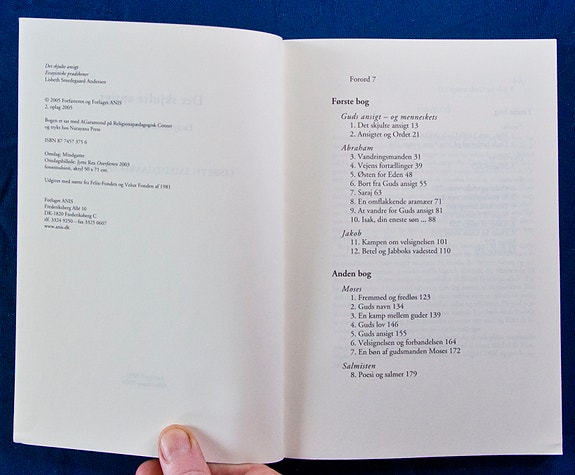 Det skjulte ansigt
Essayistiske prædikener
Lisbeth Smedegaard Andersen
© 2005 Forfatteren og Forlaget ANIS
2. oplag 2005
Bogen er sat med AGaramond på Religionspædagogisk Center
og trykt hos Narayana Press
ISBN 87 7457 375 6
Omslag: Mindgame
Omslagsbillede: Jens Rex Overfarten 2003
60x71 cm.
Udgivet med støtte fra Felix-Fonden og Velux Fonden af 1981
Forlaget ANIS
Frederiksberg Allé 10
DK-1820 Frederiksberg C
tlf. 3324 9250 – fax 3325 0607
www.anis.dk
Forord 7
Første bog
Guds ansigt – og menneskets
1. Det skjulte ansigt 13
2. Ansigtet og Ordet 21
Abraham
3. Vandringsmanden 31
4. Vejens fortællinger 39
5. Østen for Eden 48
6. Bort fra Guds ansigt 55
7. Saraj 63
8. En omflakkende aramæer 71
9. At vandre for Guds ansigt 81
10. Isak, din eneste søn ... 88
Jakob
11. Kampen om velsignelsen 101
12. Betel og Jabboks vadested 110
Anden bog
Moses
1. Fremmed og fredløs 123
2. Guds navn 134
3. En kamp mellem guder 139
4. Guds lov 146
5. Guds ansigt 155
6. Velsignelsen og forbandelsen 164
7. En bøn af gudsmanden Moses 172
Salmisten
8. Poesi og salmer 179